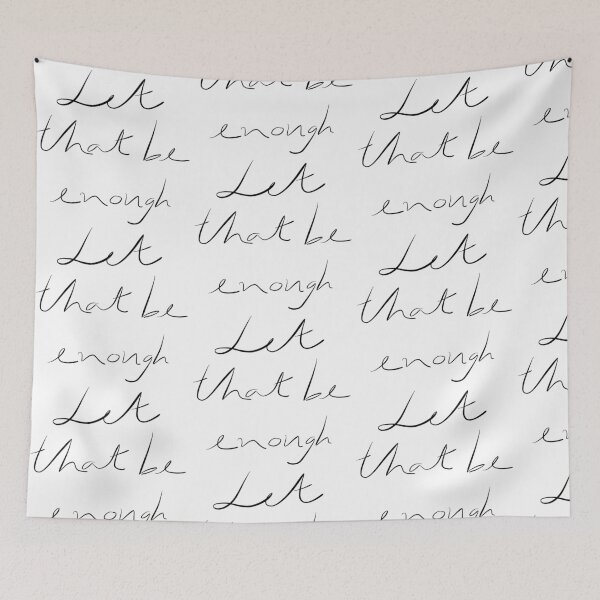 Let
that be
enough
Let
that be
enough
Let
that be
enough
that be
enough
Let
that be
enough
Let
that be
enough
Let
Let
that be
enough
Let
that be
enough
Let
that be
enough